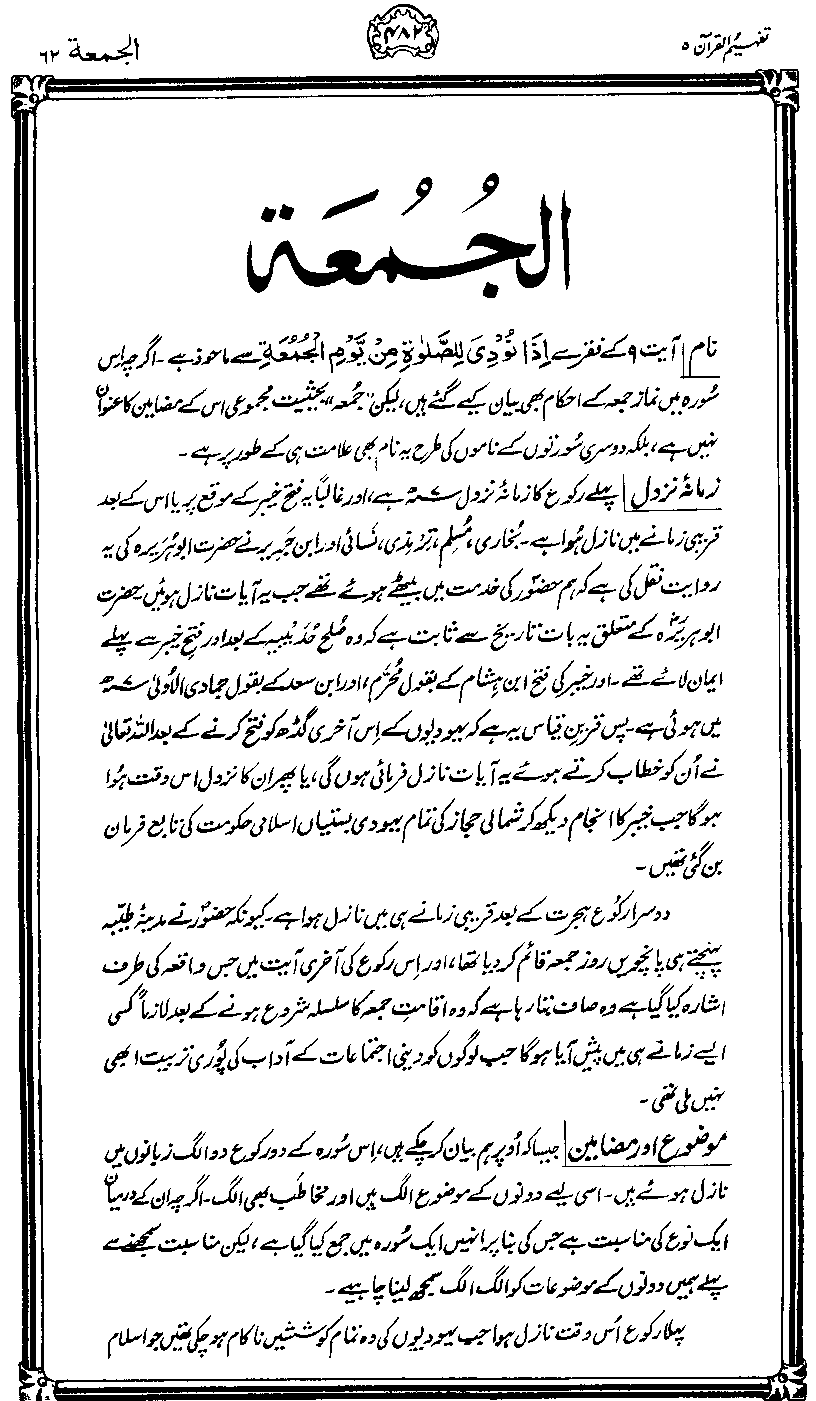 تفہیم القرآن ۵
۴۸۲
الجمعة ۶۲
الجُمُعَة
نام آیت ۹ کے فقرے اِذَا نُوْدِیَ لِلصَّلٰوةِ مِنْ یَّوْمِ الْجُمُعَةِ سے ماخوذ ہے۔ اگرچہ اس
سُورہ میں نماز جمعہ کے احکام بھی بیان کیے گئے ہیں، لیکن ”جُمعہ“ بحیثیت مجموعی اس کے مضامین کا عنوان
نہیں ہے، بلکہ دوسری سُورتوں کے ناموں کی طرح یہ نام بھی علامت ہی کے طور پر ہے۔
زمانۂ نزول پہلے رکوع کا زمانۂ نزول ۷ھ ہے، اور غالباً یہ فتح خیبر کے موقع پر یا اس کے بعد
قریبی زمانے میں نازل ہُوا ہے۔ بُخاری، مُسلم، تِرمِذی، نَسائی اور ابن جَریر نے حضرت ابوہُریرہ کی یہ
روایت نقل کی ہے کہ ہم حضورؐ کی خدمت میں بیٹھے ہوئے تھے جب یہ آیات نازل ہوئیں۔ حضرت
ابوہریرہؓ کے متعلق یہ بات تاریخ سے ثابت ہے کہ وہ صُلح حُدَیبیہ کے بعد اور فتح خیبر سے پہلے
ایمان لائے تھے۔ اور خیبر کی فتح ابن ہِشام کے بقول محُرَّم، اور ابن سعد کے بقول جمادی الاُولیٰ ۷ھ
میں ہوئی ہے۔ پس قرینِ قیاس یہ ہے کہ یہودیوں کے اِس آخری گڈھ کو فتح کرنے کے بعد اللہ تعالیٰ
نے اُن کو خطاب کرتے ہوئے یہ آیات نازل فرمائی ہوں گی، یا پھر ان کا نزول اس وقت ہُوا
ہوگا جب خیبر کا انجام دیکھ کر شمالی حجاز کی تمام یہودی بستیاں اسلامی حکومت کی تابع فرمان
بن گئی تھیں۔
دوسرا رکُوع ہجرت کے بعد قریبی زمانے ہی میں نازل ہوا ہے۔ کیونکہ حضورؐ نے مدینۂ طیّبہ
پہنچتے ہی پانچویں روز جمعہ قائم کر دیا تھا، اور اِس رکوع کی آخری آیت میں جس واقعہ کی طرف
اشارہ کیا گیا ہے وہ صاف بتا رہا ہے کہ وہ اقامتِ جمعہ کا سلسلہ شروع ہونے کے بعد لازماً کسی
ایسے زمانے ہی میں پیش آیا ہوگا جب لوگوں کو دینی اجتماعات کے آداب کی پُوری تربیت ابھی
نہیں ملی تھی۔
موضوع اور مضامین جیسا کہ اُوپر ہم بیان کر چکے ہیں، اِس سُورہ کے دو رکوع دو الگ زمانوں میں
نازل ہوئے ہیں۔ اسی لیے دونوں کے موضوع الگ ہیں اور مخاطَب بھی الگ۔ اگرچہ ان کے درمیان
ایک نوع کی مناسبت ہے جس کی بنا پر انہیں ایک سُورہ میں جمع کیا گیا ہے، لیکن مناسبت سمجھنے سے
پہلے ہمیں دونوں کے موضوعات کو الگ الگ سمجھ لینا چاہیے۔
پہلا رکوع اُس وقت نازل ہوا جب یہودیوں کی وہ تمام کوششیں ناکام ہو چکی تھیں جو اسلام